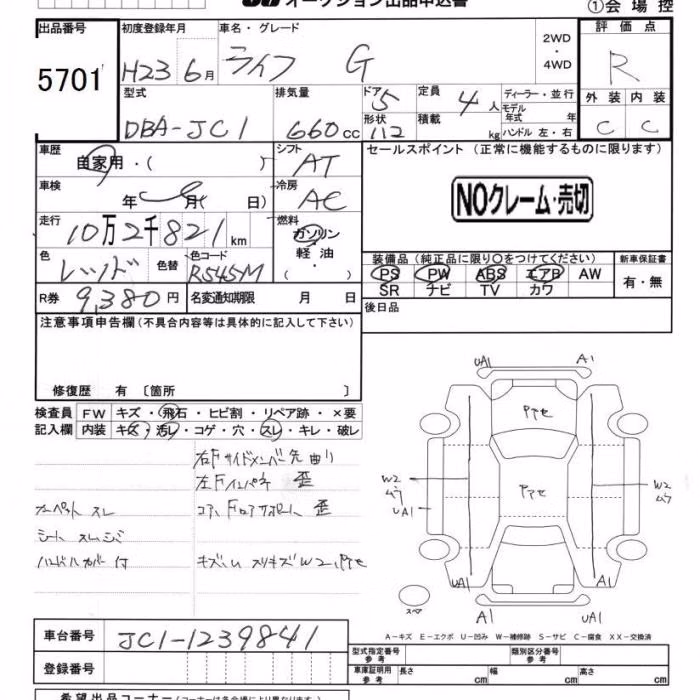 オークション出品申込書
①会場控
出品番号 初度登録年月 車名・グレード 2WD・4WD 評価点
5701 H23 6月 ライフ G R
型式 排気量 ドア 5 定員 4人 ディーラー・並行 外装 内装
DBA-JC1 660cc 形状 112 積載 kg モデル年式 年 ハンドル 左・右 C C
車歴 自家用・( ) シフト AT セールスポイント (正常に機能するものに限ります)
車検 年 月( 日) 冷房 AC
NOクレーム・売切
走行 10万2千821km 燃料 ガソリン・軽油・( )
色 レッド 色替 色コード R545M
装備品(純正品に限り○をつけてください) 新車保証書
PS PW ABS エアB AW 有・無
SR ナビ TV カワ
R券 9,380円 名変通知期限 月 日
後日品
注意事項申告欄(不具合内容等は具体的に記入して下さい)
修復歴 有 〔箇所 〕
検査員 FW キズ・飛石・ヒビ割・リペア跡・×要
記入欄 内装 キズ・汚レ・コゲ・穴・スレ・キレ・破レ
右Fサイドメンバー先曲り
左Fインパネ 歪
カーペット スレ コア、Fロアサポート 歪
シート スレ シミ
ハンドルカバー付 キズ凹 スリキズ W2 Pアセ
UA1 A1
Pアセ
W2 ムラ Pアセ W2 ムラ
UA1
UA1 A1
スペア A1 UA1
A-キズ E-エクボ U-凹み W-補修跡 S-サビ C-腐食 XX-交換済
車台番号 JC1-1239841
型式指定番号 参考 類別区分番号 参考
登録番号
車庫証明用 参考 長さ cm 幅 cm 高さ cm
希望出品コーナー